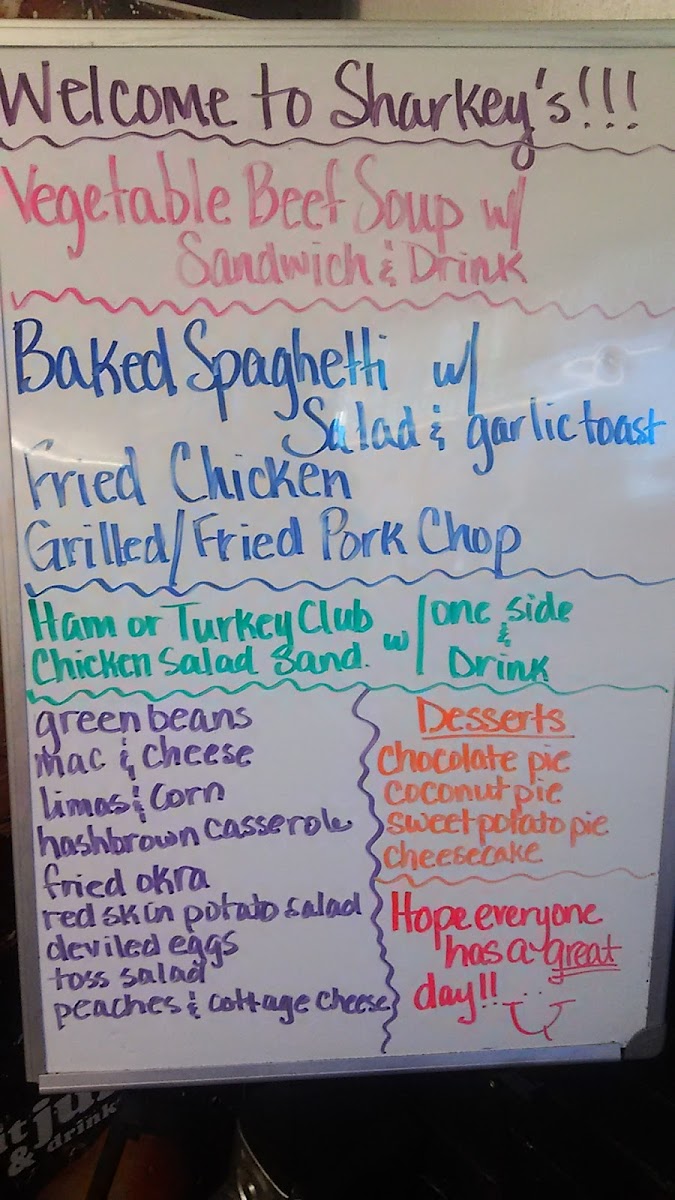 Welcome to Sharkey's!!!
Vegetable Beef Soup w/
Sandwich & Drink
Baked Spaghetti w/
Salad & garlic toast
Fried Chicken
Grilled/Fried Pork Chop
Ham or Turkey Club
Chicken Salad Sand.
w/ one side
&
Drink
green beans
mac & cheese
limas & corn
hashbrown casserole
fried okra
red skin potato salad
deviled eggs
toss salad
peaches & cottage cheese
Desserts
chocolate pie
coconut pie
sweet potato pie
cheesecake
Hope everyone
has a great
day!!
& drink